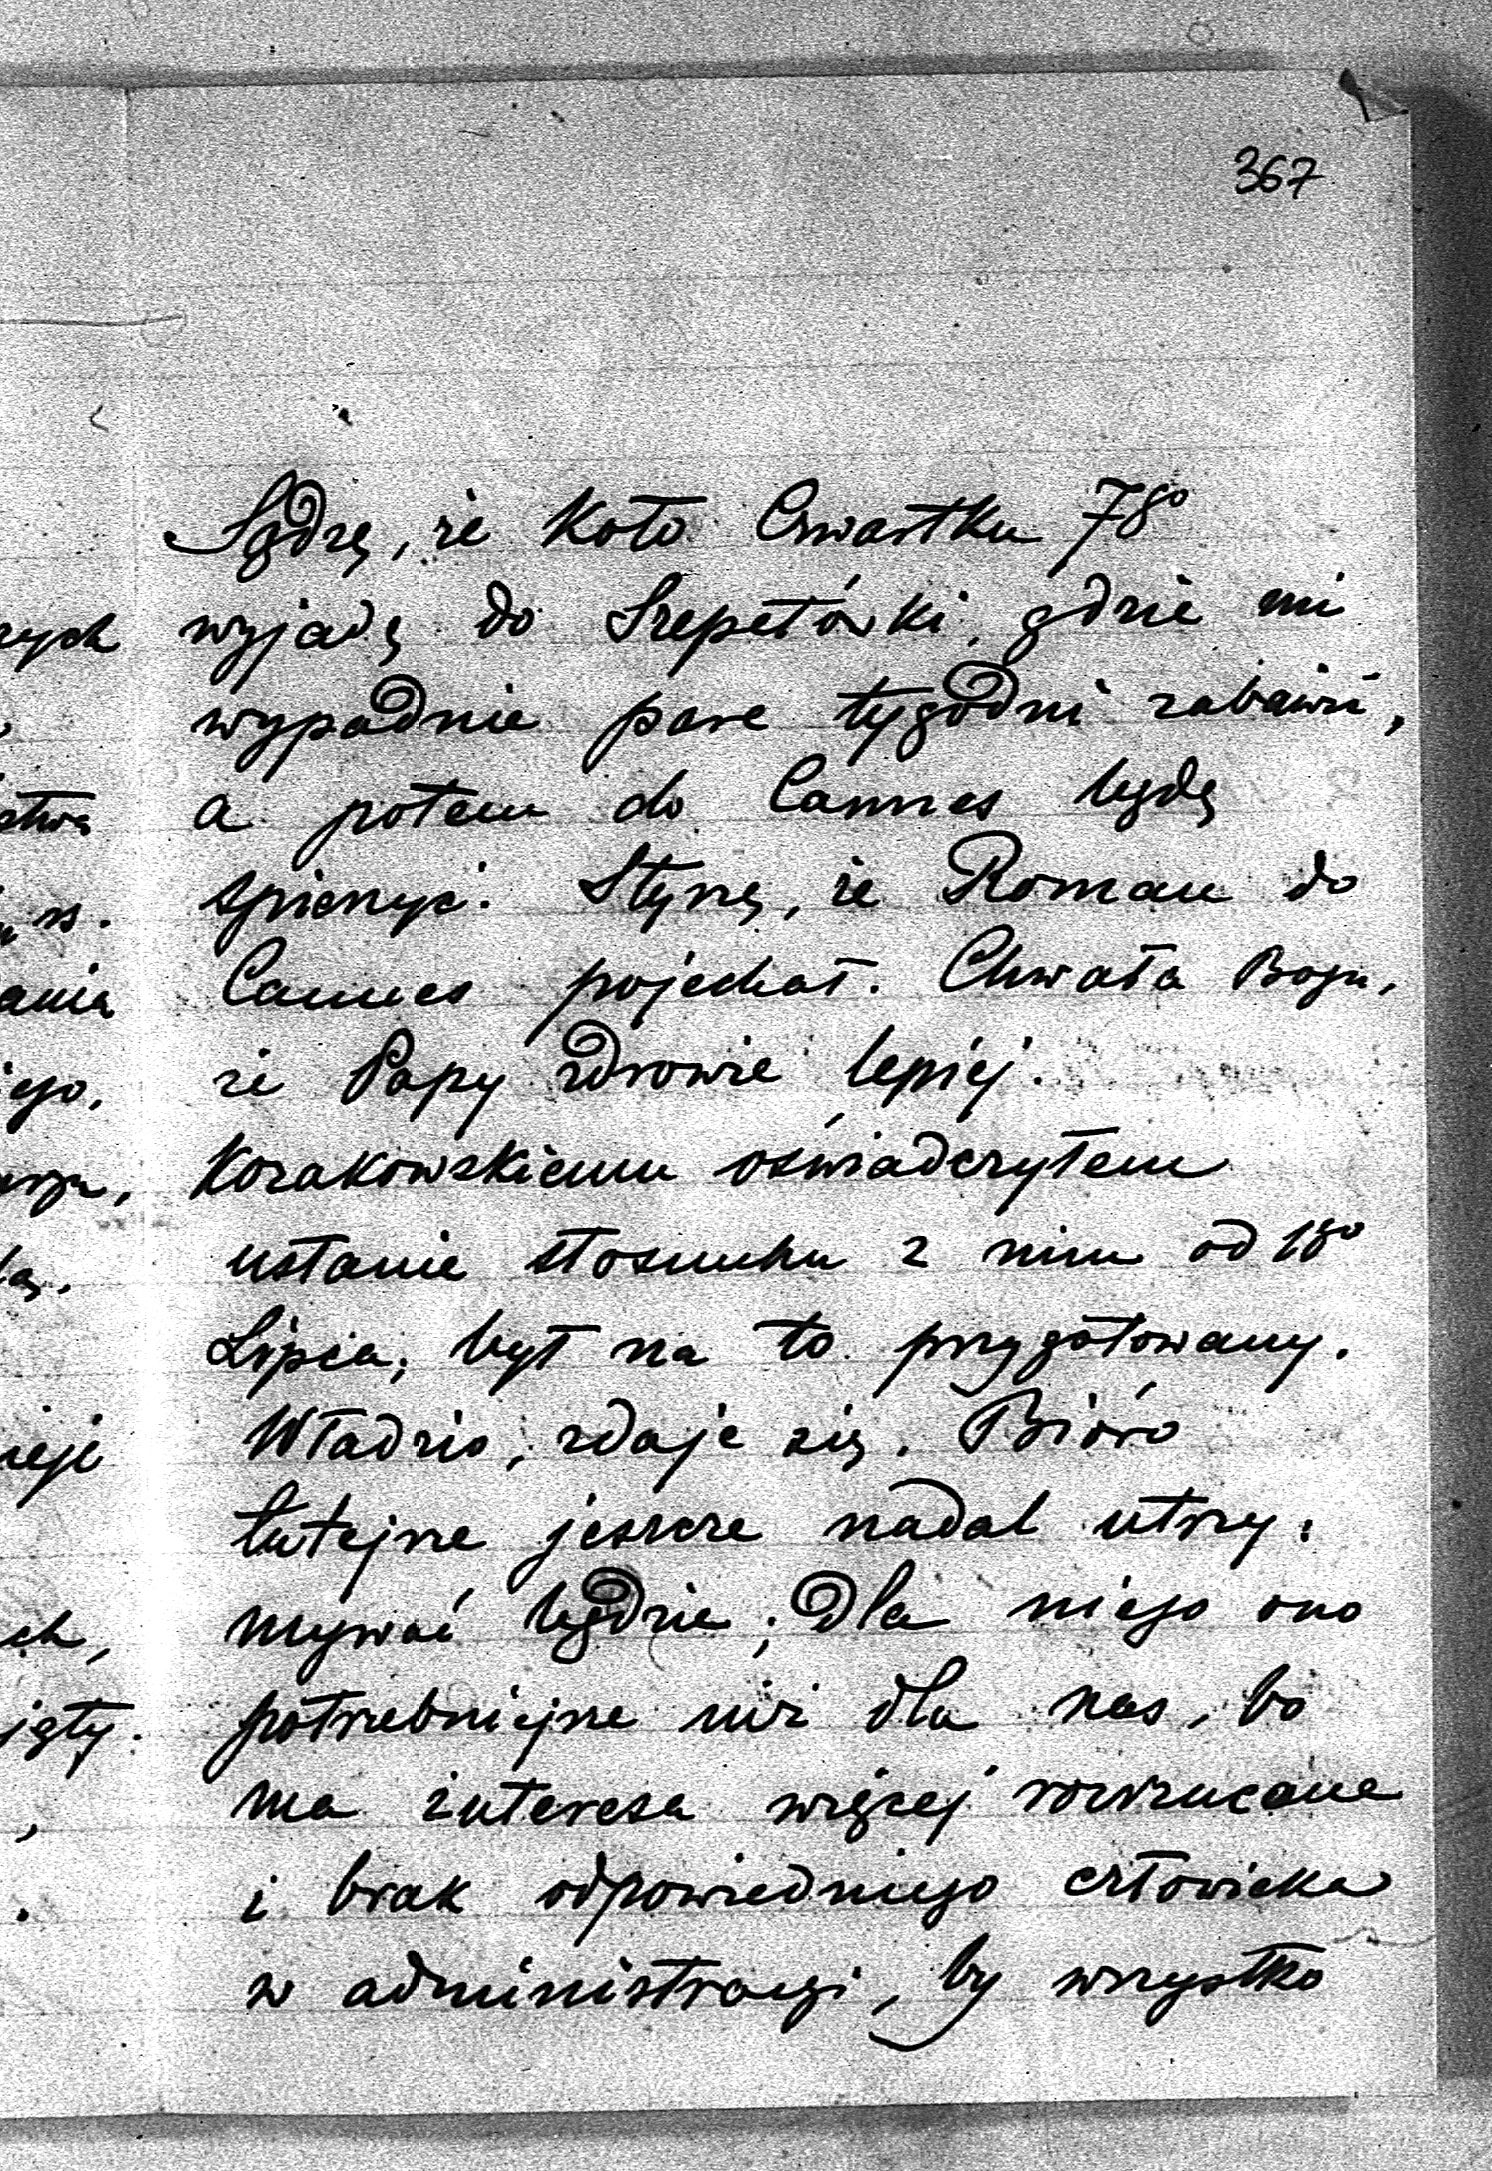 367
Sądzę, że koło Czwartku 7go
rych wyjadę do Szepetówki, gdzie mi
wypadnie parę tygodni zabawić,
ctwa a potem do Cannes będę
rs. spieszyć. Słyszę, że Roman do
ania Cannes pojechał. Chwała Bogu,
iego, że Papy zdrowie lepiej.
Kozakowskiemu oświadczyłem
ustanie stosunku z nim od 1go
Lipca; był na to przygotowany.
ieje Władzio, zdaje się, Bióro
tutejsze jeszcze nadal utrzy:
ich, mywać będzie; dla niego ono
jęty. potrzebniejsze niż dla nas, bo
ma interesa więcej rozrzucone
i brak odpowiedniego człowieka
w administracyi, by wszystko